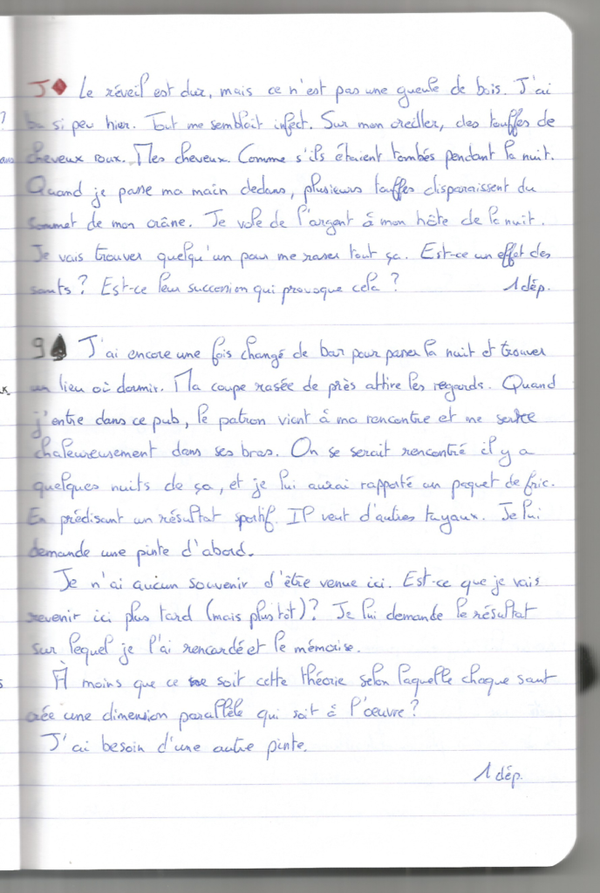 J♦ Le réveil est dur, mais ce n'est pas une gueule de bois. J'ai
bu si peu hier. Tout me semblait infect. Sur mon oreiller, des touffes de
cheveux roux. Mes cheveux. Comme s'ils étaient tombés pendant la nuit.
Quand je passe ma main dedans, plusieurs touffes disparaissent du
sommet de mon crâne. Je vole de l'argent à mon hôte de la nuit.
Je vais trouver quelqu'un pour me raser tout ça. Est-ce un effet des
sauts? Est-ce leur succession qui provoque cela? 1 dép.
9♠ J'ai encore une fois changé de bar pour passer la nuit et trouver
un lieu où dormir. Ma coupe rasée de près attire les regards. Quand
j'entre dans ce pub, le patron vient à ma rencontre et me serre
chaleureusement dans ses bras. On se serait rencontré il y a
quelques nuits de ça, et je lui aurai rapporté un paquet de fric.
En prédisant un résultat sportif. Il veut d'autres tuyaux. Je lui
demande une pinte d'abord.
Je n'ai aucun souvenir d'être venue ici. Est-ce que je vais
revenir ici plus tard (mais plus tot)? Je lui demande le résultat
sur lequel je l'ai rencardé et le mémorise.
À moins que ce soit cette théorie selon laquelle chaque saut
crée une dimension parallèle qui soit à l'œuvre?
J'ai besoin d'une autre pinte.
1 dép.